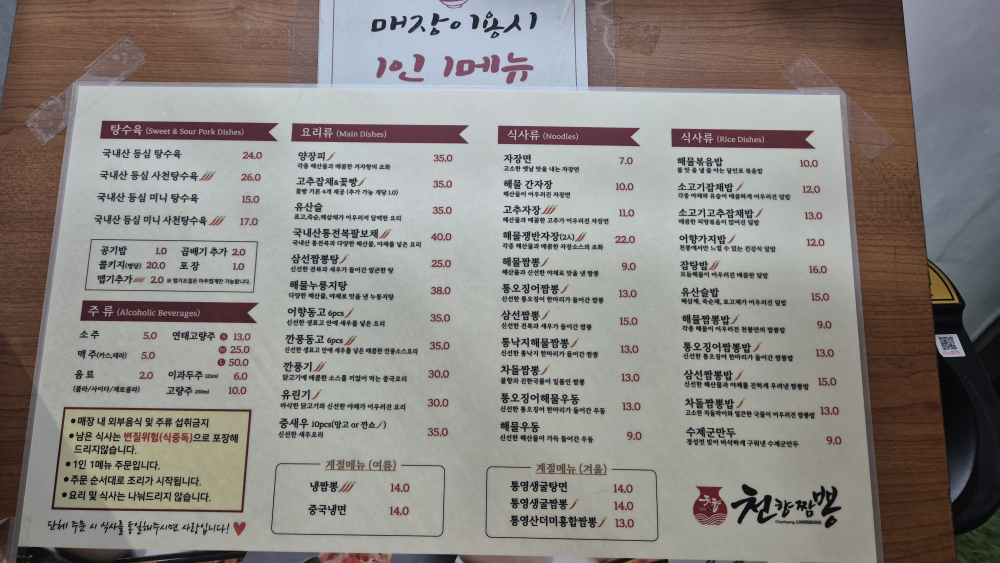 매장이용시
1인 1메뉴
탕수육 (Sweet & Sour Pork Dishes)
국내산 등심 탕수육 24.0
국내산 등심 사천탕수육 26.0
국내산 등심 미니 탕수육 15.0
국내산 등심 미니 사천탕수육 17.0
공기밥 1.0 곱빼기 추가 2.0
콜키지(병당) 20.0 포장 1.0
맵기추가 2.0 ※ 맵기조절은 아쿠렵게만 가능합니다.
주류 (Alcoholic Beverages)
소주 5.0 연태고량주 S 13.0
맥주(카스,테라) 5.0 M 25.0
L 50.0
음료 2.0 이과두주 125ml 6.0
(콜라/사이다/제로콜라) 고량주 250ml 10.0
• 매장 내 외부음식 및 주류 섭취금지
• 남은 식사는 변질위험(식중독)으로 포장해
드리지않습니다.
• 1인 1메뉴 주문입니다.
• 주문 순서대로 조리가 시작됩니다.
• 요리 및 식사는 나눠드리지 않습니다.
단체 주문 시 식사를 통일해주시면 사랑입니다!
요리류 (Main Dishes)
양장피 35.0
각종 해산물과 매콤한 겨자향의 조화
고추잡채&꽃빵 35.0
꽃빵 기본 4개 제공 (추가 가능 개당 1.0)
유산슬 35.0
표고,죽순,해삼채가 어우러져 담백한 요리
국내산통전복팔보채 40.0
국내산 통전복과 다양한 해산물, 야채를 넣은 요리
삼선짬뽕탕 25.0
신선한 전복과 새우가 들어간 얼큰한 탕
해물누룽지탕 38.0
다양한 해산물, 야채로 맛을 낸 누룽지탕
어향동고 6pcs 35.0
신선한 생표고 안에 새우를 넣은 요리
깐풍동고 6pcs 35.0
신선한 생표고 안에 새우를 넣은 매콤한 깐풍소스요리
깐풍기 30.0
닭고기에 매콤한 소스를 끼얹어 먹는 중국요리
유린기 30.0
바삭한 닭고기와 신선한 야채가 어우러진 요리
중새우 10pcs(망고 or 깐쇼) 35.0
신선한 새우요리
계절메뉴 (여름)
냉짬뽕 14.0
중국냉면 14.0
식사류 (Noodles)
자장면 7.0
고소한 옛날 맛을 내는 자장면
해물 간자장 10.0
해산물이 어우러진 자장면
고추자장 11.0
해산물과 매콤한 고추가 어우러진 자장면
해물쟁반자장(2人) 22.0
각종 해산물과 매콤한 자장소스의 조화
해물짬뽕 9.0
해산물과 신선한 야채로 맛을 낸 짬뽕
통오징어짬뽕 13.0
신선한 통오징어 한마리가 들어간 짬뽕
삼선짬뽕 15.0
신선한 전복과 새우가 들어간 짬뽕
통낙지해물짬뽕 13.0
신선한 통낙지 한마리가 들어간 짬뽕
차돌짬뽕 13.0
불향과 진한국물이 일품인 짬뽕
통오징어해물우동 13.0
신선한 통오징어 한마리가 들어간 우동
해물우동 9.0
신선한 해산물이 가득 들어간 우동
계절메뉴 (겨울)
통영생굴탕면 14.0
통영생굴짬뽕 14.0
통영산더미홍합짬뽕 13.0
식사류 (Rice Dishes)
해물볶음밥 10.0
불 맛을 낼 줄 아는 달인표 볶음밥
소고기잡채밥 12.0
각종 야채와 유슬이 매콤하게 어우러진 덮밥
소고기고추잡채밥 13.0
매콤한 피망볶음이 얹어진 덮밥
어향가지밥 12.0
천향에서만 느낄 수 있는 건강식 덮밥
잡탕밥 16.0
모듬해물이 어우러진 매콤한 덮밥
유산슬밥 15.0
해삼채, 죽순채, 표고채가 어우러진 덮밥
해물짬뽕밥 9.0
각종 해물이 어우러진 천향만의 짬뽕밥
통오징어짬뽕밥 13.0
신선한 통오징어 한마리가 들어간 짬뽕밥
삼선짬뽕밥 15.0
신선한 해산물과 야채를 진하게 우려낸 짬뽕밥
차돌짬뽕밥 13.0
고소한 차돌박이와 얼큰한 국물이 어우러진 짬뽕밥
수제군만두 9.0
정성껏 빚어 바삭하게 구워낸 수제군만두
천향
천향짬뽕
Chunhyang JJAMBBONG